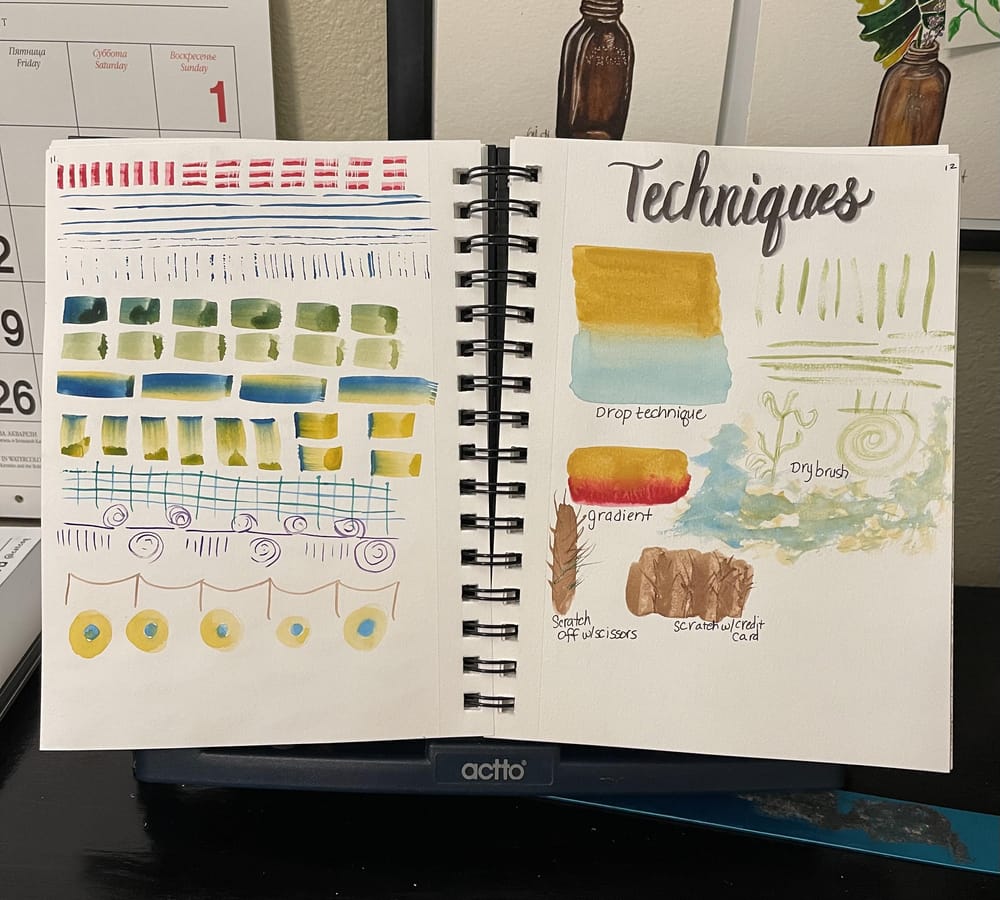 Пятница
Friday
Суббота
Saturday
Воскресенье
Sunday
1
2
9
26
11
12
Techniques
Drop technique
Dry brush
gradient
Scratch
Off w/scissors
Scratch w/credit
Card
actto